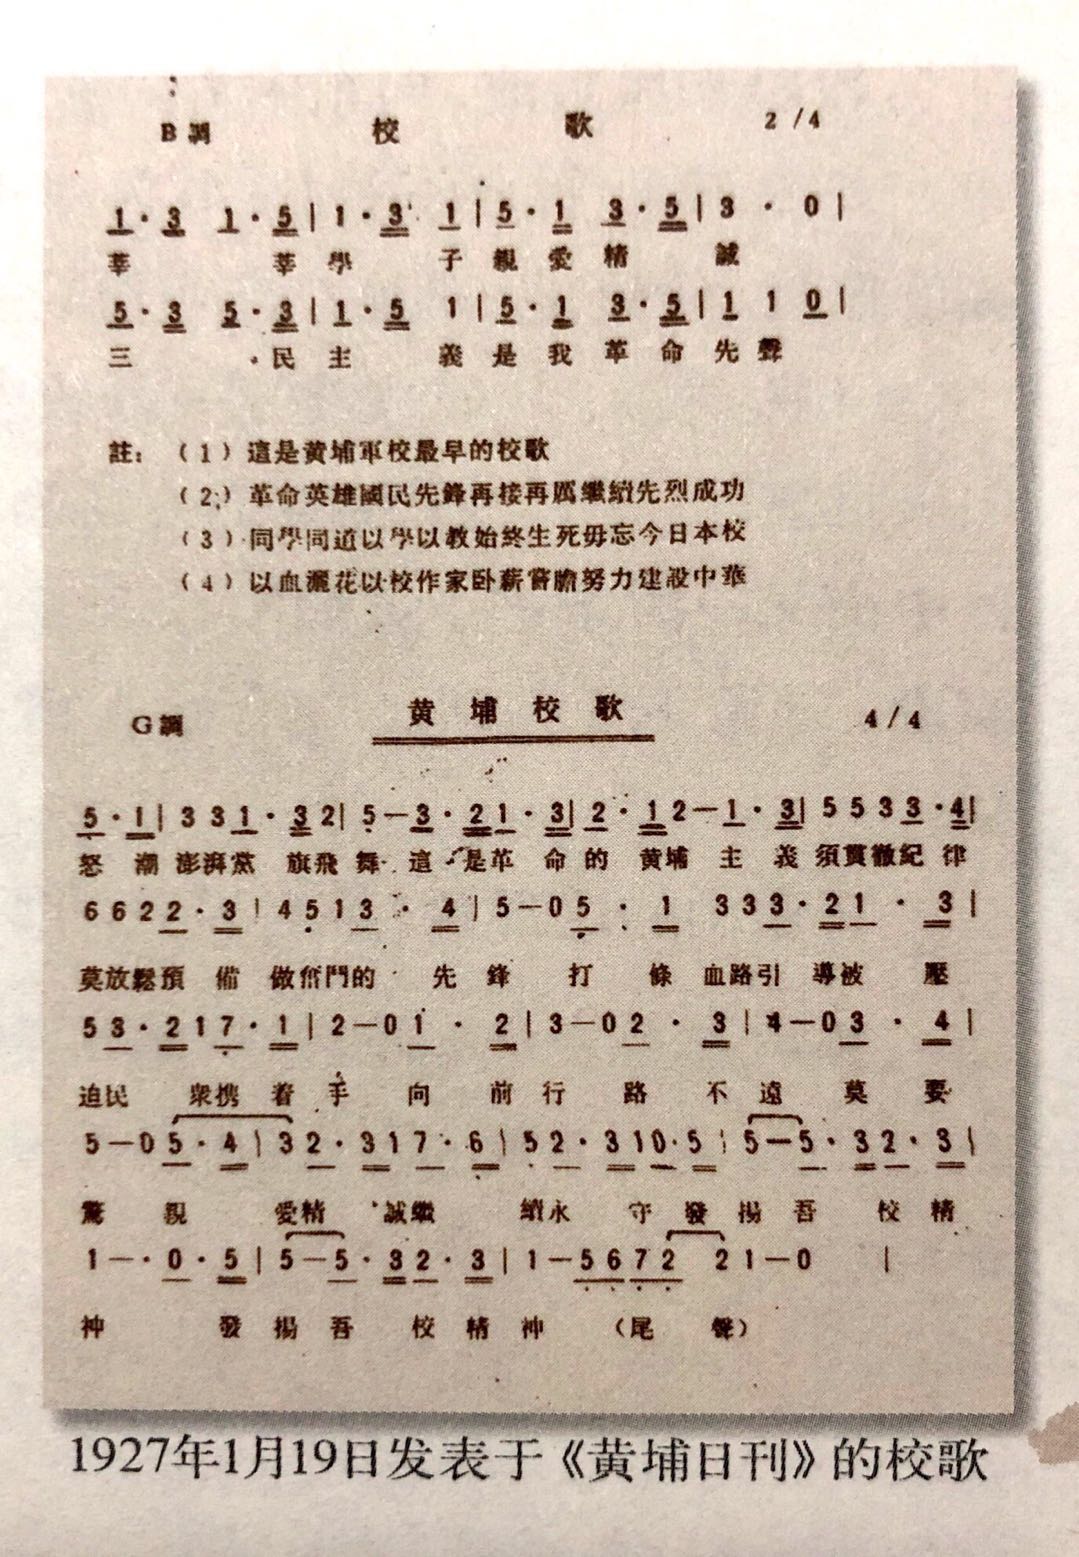 B調 校 歌 2/4
1·3 1·5|1·3 1|5·1 3·5|3·0|
莘 莘學 子親愛精 誠
5·3 5·3|1·5 1|5·1 3·5|1 1 0|
三 民主 義是我革命先聲
註:(1)這是黄埔軍校最早的校歌
(2)革命英雄國民先鋒再接再厲繼續先烈成功
(3)同學同道以學以教始終生死毋忘今日本校
(4)以血灑花以校作家卧薪嘗膽努力建設中華
G調 黄埔校歌 4/4
5·1|331·32|5—3·21·3|2·12—1·3|5533·4|
怒潮澎湃黨旗飛舞這是革命的黄埔主義須貫徹紀律
6622·3|4513·4|5—05·1 333·21·3|
莫放鬆預備做奮鬥的先鋒打條血路引導被壓
53·217·1|2—01·2|3—02·3|4—03·4|
迫民衆携着手向前行路不遠莫要
5—05·4|32·317·6|52·310·5|5—5·32·3|
驚親愛精誠繼續永守發揚吾校精
1—·0·5|5—5·32·3|1—5672 21—0 |
神 發揚吾校精神(尾聲)
1927年1月19日发表于《黄埔日刊》的校歌